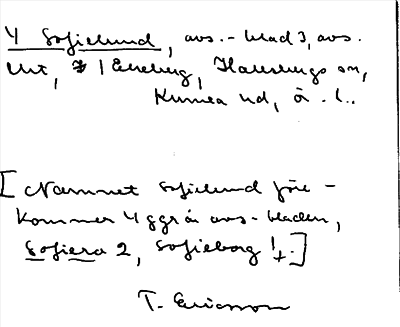 4 Sofielund, avs.-blad 3, avs.
Ekeberg, Hallsbergs sn,
Kumla hd, Ö. l..
[Namnet Sofielund före-
kommer 4 ggr å avs-bladen,
Sofiero 2, Sofieborg 1.]
T. Ericsson